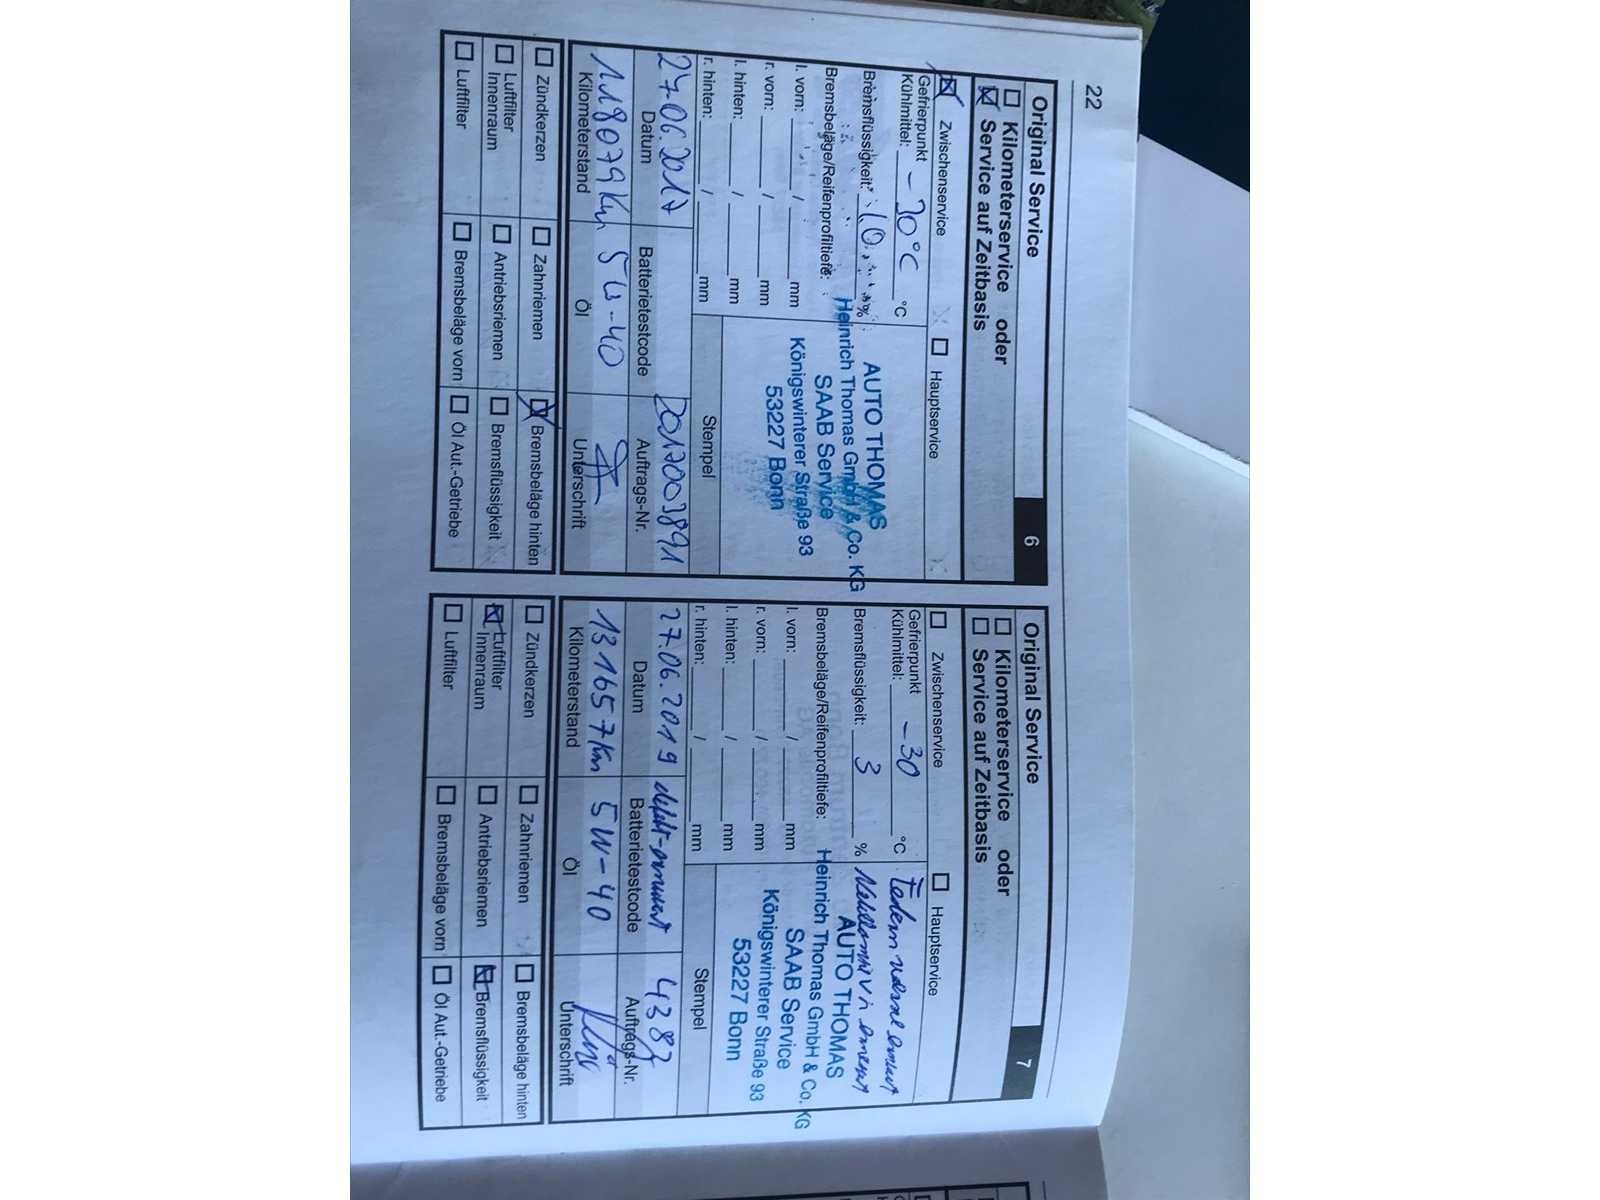 22
Original Service 6
☐ Kilometerservice oder
☒ Service auf Zeitbasis
☒ Zwischenservice ☐ Hauptservice
Gefrierpunkt
Kühlmittel: -30°C °C
Bremsflüssigkeit: %
Bremsbeläge/Reifenprofiltiefe:
l. vorn: / mm
r. vorn: / mm
l. hinten: / mm
r. hinten: / mm
AUTO THOMAS
Heinrich Thomas GmbH & Co. KG
SAAB Service
Königswinterer Straße 93
53227 Bonn
Stempel
27.06.2017 2017003891
Datum Batterietestcode Auftrags-Nr.
118079 Km 5W-40
Kilometerstand Öl Unterschrift
☐ Zündkerzen ☐ Zahnriemen ☒ Bremsbeläge hinten
☐ Luftfilter Innenraum ☐ Antriebsriemen ☐ Bremsflüssigkeit
☐ Luftfilter ☐ Bremsbeläge vorn ☐ Öl Aut.-Getriebe
Original Service 7
☐ Kilometerservice oder
☐ Service auf Zeitbasis
☐ Zwischenservice ☐ Hauptservice
Gefrierpunkt
Kühlmittel: -30 °C Federn
Bremsflüssigkeit: 3 %
Bremsbeläge/Reifenprofiltiefe:
l. vorn: / mm
r. vorn: / mm
l. hinten: / mm
r. hinten: / mm
AUTO THOMAS
Heinrich Thomas GmbH & Co. KG
SAAB Service
Königswinterer Straße 93
53227 Bonn
Stempel
27.06.2019 defekt- 4387
Datum Batterietestcode Auftrags-Nr.
131657 Km 5W-40
Kilometerstand Öl Unterschrift
☐ Zündkerzen ☐ Zahnriemen ☐ Bremsbeläge hinten
☒ Luftfilter Innenraum ☐ Antriebsriemen ☒ Bremsflüssigkeit
☐ Luftfilter ☐ Bremsbeläge vorn ☐ Öl Aut.-Getriebe